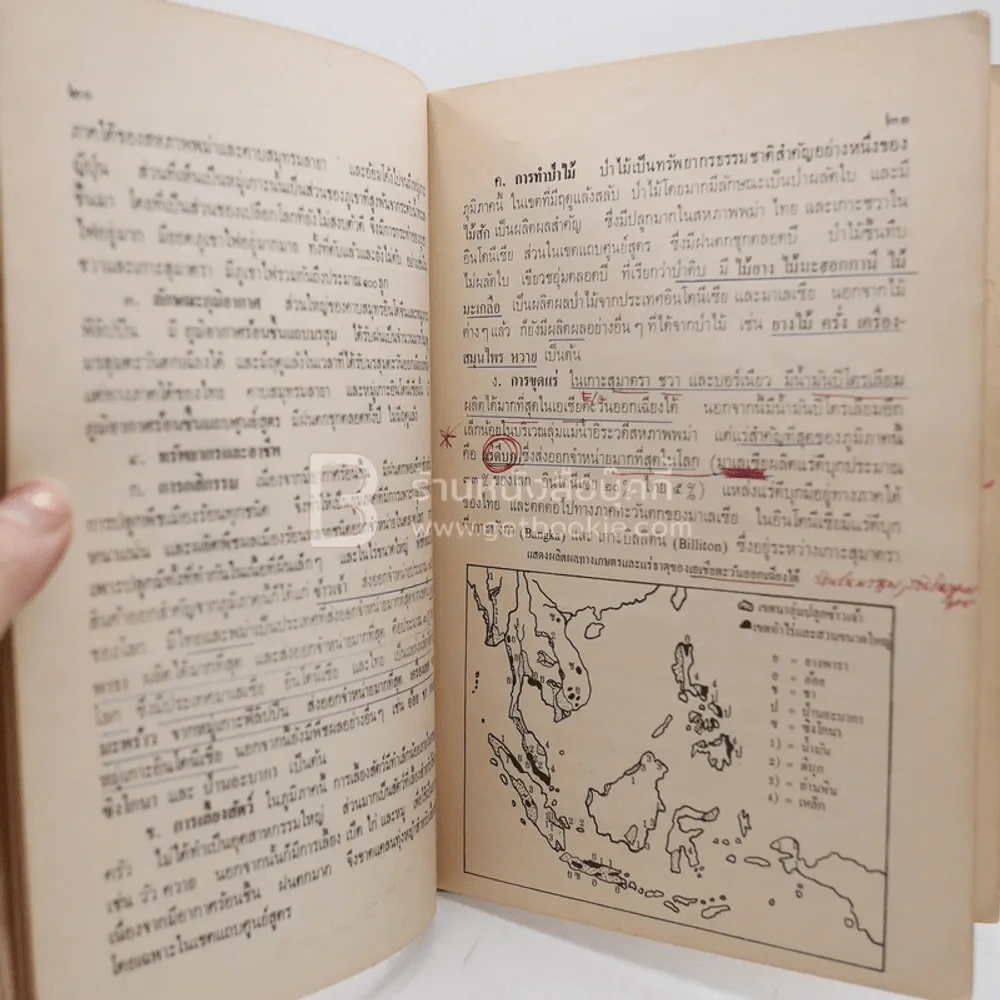 ๒๐
ภาคใต้ของสหภาพพม่าและคาบสมุทรมลายา และอ้อมโค้งไปจนถึงหมู่เกาะ
ญี่ปุ่น ส่วนที่เห็นเป็นหมู่เกาะนั้นเป็นส่วนของภูเขาที่สูงพ้นจากระดับน้ำทะเล
ขึ้นมา โดยที่เป็นส่วนของเปลือกโลกที่ยังไม่สงบตัวดี จึงมีการระเบิดของภูเขา
ไฟอยู่มาก มียอดภูเขาไฟอยู่มากมาย ทั้งที่ดับแล้วและยังไม่ดับ
ชวาและเกาะสุมาตรา มีภูเขาไฟรวมกันถึงประมาณ ๑๐๐ ลูก
๓. ลักษณะภูมิอากาศ ส่วนใหญ่ของคาบสมุทรอินโดจีนและหมู่เกาะ
ฟิลิปปิน มีภูมิอากาศร้อนชื้นแถบมรสุม ได้รับฝนเป็นจำนวนมากใน
มรสุมตะวันตกเฉียงใต้ และมีฤดูแล้งในเวลาที่ได้รับมรสุมตะวันออกเฉียงเหนือ
แต่ทางภาคใต้ของไทย คาบสมุทรมลายา และหมู่เกาะอินโดนีเซียนั้น มี
ภูมิอากาศร้อนชื้นแถบศูนย์สูตร มีฝนตกชุกตลอดทั้งปี ไม่มีฤดูแล้ง
๔. ทรัพยากรและอาชีพ
ก. การกสิกรรม เนื่องจากมีอากาศร้อนชื้น มีฝนตก
การปลูกพืชเมืองร้อนทุกชนิด จึงทำให้
หนาแน่น และผลิตพืชผลเมืองร้อน
เพาะปลูกมีทั้งที่ทำกันในเนื้อที่ผืนเล็กๆ และในไร่ขนาดใหญ่
สินค้าออกสำคัญจากภูมิภาคนี้ก็ได้แก่ ข้าวเจ้า ส่งออกจำหน่าย
ของโลก มีไทยและพม่าเป็นประเทศที่ส่งออกจำหน่ายมากที่สุด
พารา ผลิตได้มากที่สุด และส่งออกจำหน่ายมากที่สุด คือประมาณ
โลก ซึ่งมีประเทศมาเลเซีย อินโดนีเซีย และไทย เป็นแหล่งผลิต
มะพร้าว จากหมู่เกาะฟิลิปปิน ส่งออกจำหน่ายมากที่สุด
หมู่เกาะอินโดนีเซีย นอกจากนี้ยังมีพืชผลอย่างอื่นๆ เช่น อ้อย ชา
ซิงโกนา และ ป่านอะบากา เป็นต้น
ข. การเลี้ยงสัตว์ ในภูมิภาคนี้ การเลี้ยงสัตว์มีทำเล็กน้อย
ครัว ไม่ได้ทำเป็นอุตสาหกรรมใหญ่ ส่วนมากเป็นสัตว์ที่เลี้ยง
เช่น วัว ควาย นอกจากนั้นก็มีการเลี้ยง เป็ด ไก่ และหมู
เนื่องจากมีอากาศร้อนชื้น ฝนตกมาก จึงขาดแคลนทุ่งหญ้าสำหรับ
โดยเฉพาะในเขตแถบศูนย์สูตร
๒๑
ค. การทำป่าไม้ ป่าไม้เป็นทรัพยากรธรรมชาติสำคัญอย่างหนึ่งของ
ภูมิภาคนี้ ในเขตที่มีฤดูแล้งสลับ ป่าไม้โดยมากมีลักษณะเป็นป่าผลัดใบ และมี
ไม้สัก เป็นผลิตผลสำคัญ ซึ่งมีปลูกมากในสหภาพพม่า ไทย และเกาะชวาใน
อินโดนีเซีย ส่วนในเขตแถบศูนย์สูตร ซึ่งมีฝนตกชุกตลอดปี ป่าไม้ขึ้นทึบ
ไม่ผลัดใบ เขียวชอุ่มตลอดปี ที่เรียกว่าป่าดิบ มี ไม้ยาง ไม้มะฮอกกานี ไม้
มะเกลือ เป็นผลิตผลป่าไม้จากประเทศอินโดนีเซีย และมาเลเซีย นอกจากไม้
ต่างๆ แล้ว ก็ยังมีผลิตผลอย่างอื่น ๆ ที่ได้จากป่าไม้ เช่น ยางไม้ ครั่ง เครื่อง-
สมุนไพร หวาย เป็นต้น
ง. การขุดแร่ ในเกาะสุมาตรา ชวา และบอร์เนียว มีน้ำมันปิโตรเลียม
ผลิตได้มากที่สุดในเอเชียตะวันออกเฉียงใต้ นอกจากนี้มีน้ำมันปิโตรเลียมอีก
เล็กน้อยในบริเวณลุ่มแม่น้ำอิระวดีสหภาพพม่า แต่แร่สำคัญที่สุดของภูมิภาคนี้
คือ แร่ดีบุก ซึ่งส่งออกจำหน่ายมากที่สุดในโลก (มาเลเซียผลิตแร่ดีบุกประมาณ
๓๓% ของโลก อินโดนีเซีย ๒๐% ไทย ๕%) แหล่งแร่ดีบุกมีอยู่ทางภาคใต้
ของไทย และติดต่อไปทางภาคตะวันตกของมาเลเซีย ในอินโดนีเซียมีแร่ดีบุก
ที่เกาะบังกา (Bangka) และ เกาะบิลลิตัน (Billiton) ซึ่งอยู่ระหว่างเกาะสุมาตรา
แสดงผลิตผลทางเกษตรและแร่ธาตุของเอเชียตะวันออกเฉียงใต้
เขตนาลุ่มปลูกข้าวเจ้า
เขตทำไร่และสวนขนาดใหญ่
ย = ยางพารา
อ = อ้อย
ช = ชา
ป = ป่านอะบากา
ซ = ซิงโกนา
1) = น้ำมัน
2) = ดีบุก
3) = ถ่านหิน
4) = เหล็ก
B ร้านหนังสือบุ๊คกี้
www.getbookie.com